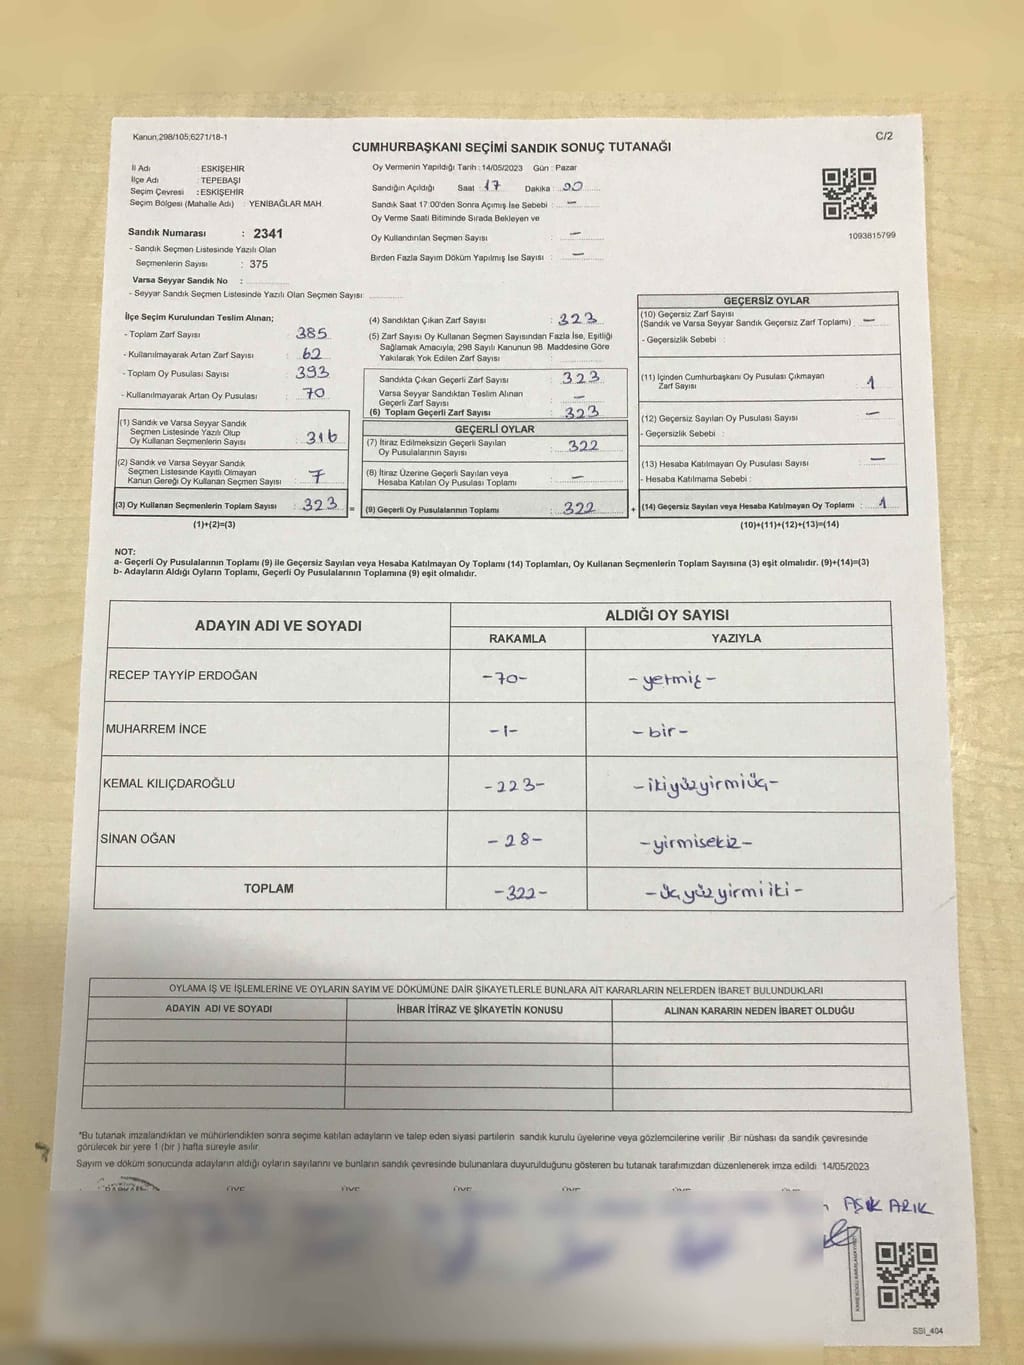 Kanun;298/105;6271/18-1
C/2
CUMHURBAŞKANI SEÇİMİ SANDIK SONUÇ TUTANAĞI
İl Adı : ESKİŞEHİR
İlçe Adı : TEPEBAŞI
Seçim Çevresi : ESKİŞEHİR
Seçim Bölgesi (Mahalle Adı) : YENİBAĞLAR MAH.
Oy Vermenin Yapıldığı Tarih : 14/05/2023 Gün : Pazar
Sandığın Açıldığı Saat : 17 Dakika : 00
Sandık Saat 17:00'den Sonra Açımış İse Sebebi : —
Oy Verme Saati Bitiminde Sırada Bekleyen ve
Oy Kullandırılan Seçmen Sayısı : —
Birden Fazla Sayım Döküm Yapılmış İse Sayısı : —
1093815799
Sandık Numarası : 2341
- Sandık Seçmen Listesinde Yazılı Olan
Seçmenlerin Sayısı : 375
Varsa Seyyar Sandık No :
- Seyyar Sandık Seçmen Listesinde Yazılı Olan Seçmen Sayısı:
İlçe Seçim Kurulundan Teslim Alınan;
- Toplam Zarf Sayısı : 385
- Kullanılmayarak Artan Zarf Sayısı : 62
- Toplam Oy Pusulası Sayısı : 393
- Kullanılmayarak Artan Oy Pusulası : 70
(1) Sandık ve Varsa Seyyar Sandık
Seçmen Listesinde Yazılı Olup
Oy Kullanan Seçmenlerin Sayısı : 316
(2) Sandık ve Varsa Seyyar Sandık
Seçmen Listesinde Kayıtlı Olmayan
Kanun Gereği Oy Kullanan Seçmen Sayısı : 7
(3) Oy Kullanan Seçmenlerin Toplam Sayısı : 323
(1)+(2)=(3)
(4) Sandıktan Çıkan Zarf Sayısı : 323
(5) Zarf Sayısı Oy Kullanan Seçmen Sayısından Fazla İse, Eşitliği
Sağlamak Amacıyla, 298 Sayılı Kanunun 98. Maddesine Göre
Yakılarak Yok Edilen Zarf Sayısı :
Sandıkta Çıkan Geçerli Zarf Sayısı : 323
Varsa Seyyar Sandıktan Teslim Alınan
Geçerli Zarf Sayısı : —
(6) Toplam Geçerli Zarf Sayısı : 323
GEÇERLİ OYLAR
(7) İtiraz Edilmeksizin Geçerli Sayılan
Oy Pusulalarının Sayısı : 322
(8) İtiraz Üzerine Geçerli Sayılan veya
Hesaba Katılan Oy Pusulası Toplamı : —
= (9) Geçerli Oy Pusulalarının Toplamı : 322
GEÇERSİZ OYLAR
(10) Geçersiz Zarf Sayısı
(Sandık ve Varsa Seyyar Sandık Geçersiz Zarf Toplamı) : —
- Geçersizlik Sebebi :
(11) İçinden Cumhurbaşkanı Oy Pusulası Çıkmayan
Zarf Sayısı : 1
(12) Geçersiz Sayılan Oy Pusulası Sayısı : —
- Geçersizlik Sebebi :
(13) Hesaba Katılmayan Oy Pusulası Sayısı : —
- Hesaba Katılmama Sebebi :
+ (14) Geçersiz Sayılan veya Hesaba Katılmayan Oy Toplamı : 1
(10)+(11)+(12)+(13)=(14)
NOT:
a- Geçerli Oy Pusulalarının Toplamı (9) ile Geçersiz Sayılan veya Hesaba Katılmayan Oy Toplamı (14) Toplamları, Oy Kullanan Seçmenlerin Toplam Sayısına (3) eşit olmalıdır. (9)+(14)=(3)
b- Adayların Aldığı Oyların Toplamı, Geçerli Oy Pusulalarının Toplamına (9) eşit olmalıdır.
ADAYIN ADI VE SOYADI ALDIĞI OY SAYISI
RAKAMLA YAZIYLA
RECEP TAYYİP ERDOĞAN -70- -yetmiş-
MUHARREM İNCE -1- -bir-
KEMAL KILIÇDAROĞLU -223- -ikiyüzyirmiüç-
SİNAN OĞAN -28- -yirmisekiz-
TOPLAM -322- -üçyüzyirmiiki-
OYLAMA İŞ VE İŞLEMLERİNE VE OYLARIN SAYIM VE DÖKÜMÜNE DAİR ŞİKAYETLERLE BUNLARA AİT KARARLARIN NELERDEN İBARET BULUNDUKLARI
ADAYIN ADI VE SOYADI İHBAR İTİRAZ VE ŞİKAYETİN KONUSU ALINAN KARARIN NEDEN İBARET OLDUĞU
*Bu tutanak imzalandıktan ve mühürlendikten sonra seçime katılan adayların ve talep eden siyasi partilerin sandık kurulu üyelerine veya gözlemcilerine verilir. Bir nüshası da sandık çevresinde
görülecek bir yere 1 (bir) hafta süreyle asılır.
Sayım ve döküm sonucunda adayların aldığı oyların sayılarını ve bunların sandık çevresinde bulunanlara duyurulduğunu gösteren bu tutanak tarafımızdan düzenlenerek imza edildi. 14/05/2023
ÜYE ÜYE ÜYE ÜYE ÜYE
AŞIK ARIK
SSI_404